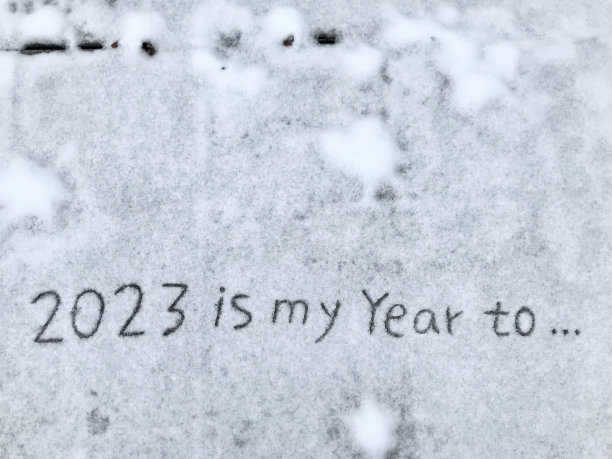 2023 is my Year to...